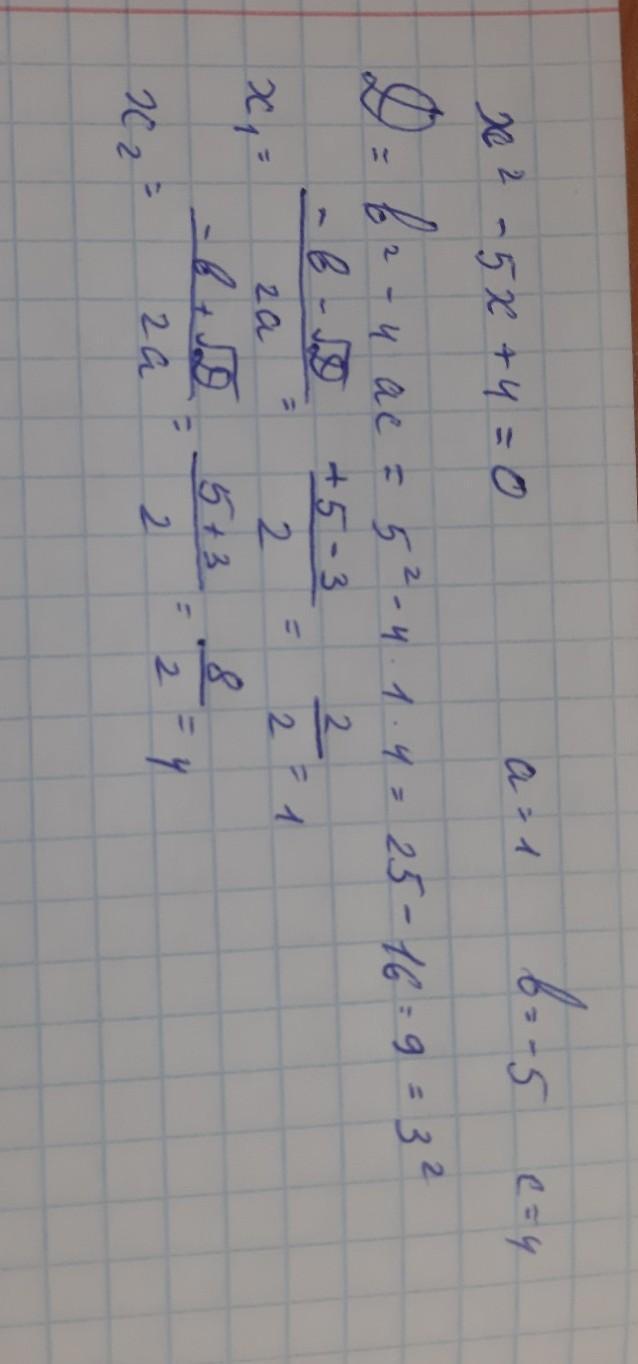 x² - 5x + 4 = 0 a = 1 b = -5 c = 4
D = b² - 4ac = 5² - 4 · 1 · 4 = 25 - 16 = 9 = 3²
x₁ = (-b - √D)/2a = (+5 - 3)/2 = 2/2 = 1
x₂ = (-b + √D)/2a = (5 + 3)/2 = 8/2 = 4